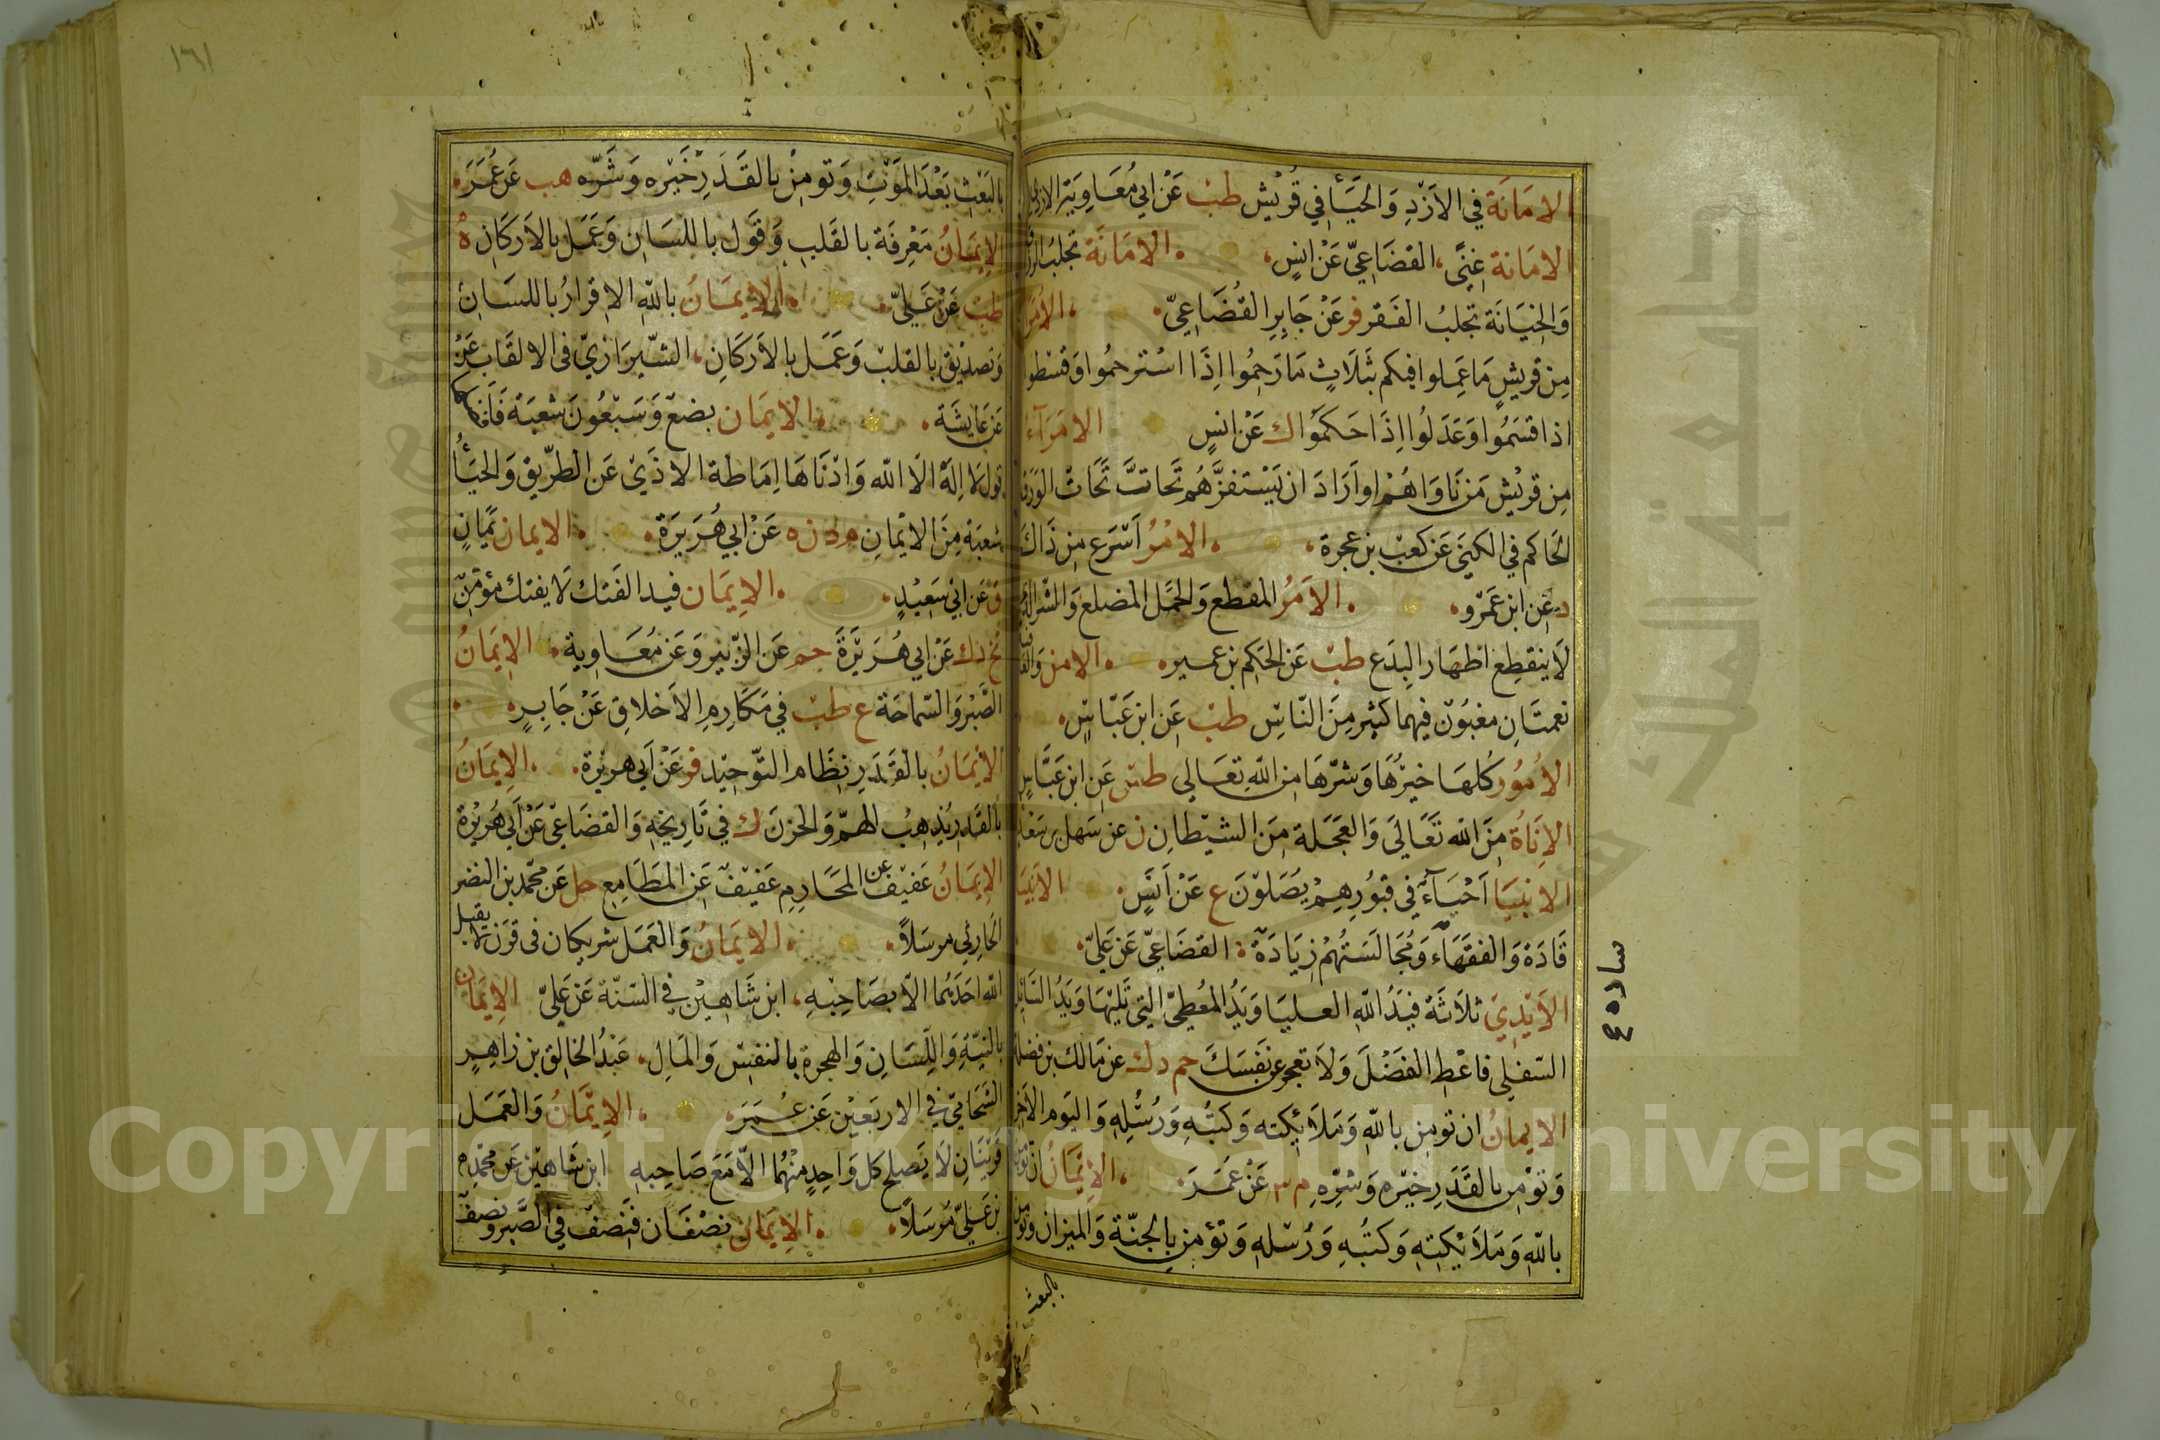 الامَانَة في الاَزْدِ وَالحَيَاءُ في قُرَيْش طبْ عَنْ ابي مُعَاوِيَة الازدي
الامَانة غِنًى، القضَاعِيّ عَنْ انسٍ، الامَانَة تجلبُ الرزق
وَالخِيَانَة تجلبُ الفَقر فر عَنْ جَابِرِ القُضَاعِيّ الامَرَا
مِن قريشٍ مَا عَمِلوا فيكم بثَلَاثٍ مَا رَحِمُوا اِذَا استُرحمُوا وَقسَطُوا
اذا قسَمُوا وَعَدَلُوا اِذَا حَكَمُوا ك عَنْ انسٍ الامَرَآءُ
مِن قريْش مَن نَاوَاهُمْ اوارَادَ ان يَسْتفزَّهُم تحَاتَّ تحَات الوَرَق
الحَاكم في الكنَى عَن كعْب بن عجرة، الامْرُ اَسْرَع مِن ذَاكَ
د عَن ابن عَمْرو الاَمْرُ المقطع وَالحمْل المضلع وَالشرالذى
لاَ ينقطِع اظهَار البِدَع طبْ عَن الحَكَم بن عمير الامن وَالعَا
نعمتَانِ مغبُون فيهما كثِير مِنَ النَّاسِ طبْ عَن ابن عَبَّاسٍ
الاُمُور كُلهَا خيرُهَا وَشرّهَا مِن اللّهِ تعَالى طسْ عَن ابن عَبَّاسٍ
الاِنَاةُ مِنَ اللّه تَعَالَى وَالعَجَلة مِنَ الشيْطانِ ن عن سَهل بن سَعْد
الانبيَا اَحْيَآءٌ في قبُورِهِمْ يُصَلوْنَ ع عَنْ اَنَسٍ الانبيَا
قَادَة وَالفقهَاء وَمُجَالَسَتُهُمْ زِيَادَة القضَاعِيّ عَن عَليّ
الاَيْدِيَ ثلاَثَة فيَدُ اللّه العليَا وَيَدُ المُعْطِيّ التي تَلِيْهَا وَيَدُ السَّائِل
السّفلِى فاعْط الفَضْلَ وَلاَ تعجز عن نَفسَكَ حم د ك عن مَالك بن نضلة
الايمانُ ان تومِن باللّه وَمَلاَئِكته وَكتبُهِ وَرُسُلِهِ وَاليَوم الآخر
وَتؤمِن بالقَدَرِ خيْرِهِ وَشرِّهِ م ٣ عَنْ عُمَرَ الاِيْمَانُ ان تؤمن
باللّهِ وَمَلاَئِكتِهِ وَكتُبِهِ وَرُسْلِهِ وَتؤمِن بالجنّة وَالميزان وتؤمن
بالبعث
سادع
١٦١
بالبَعْثِ بَعْدَ المَوْتِ وَتومِنْ بالقَدَرِ خَيْرِه وَشَرّه هب عَن عُمَرَ
الاِيْمَانُ مَعْرِفَة بالقَلبِ وَقوَل باللسَانِ وَعَمَل بالاَركَانِ ه
طبْ عَنْ عَليّ الاِيمَانُ باللّهِ الاِقرَارُ باللسَانِ
وَتصدِيْق بالقلبْ وَعَمَل بالاَرَكَانِ، الشّيرَازيّ في الالقَاب عَنْ
عَن عَايشَة الاِيمَان بضعٌ وَسَبْعُونَ شعبَة فَافضلها
قول لاَ اِلهَ الاَ اللّه وَادْنَاهَا اِمَاطة الاذَي عَن الطرِّيق وَالحَيَاُ
شعبَة مِنَ الاِيْمانِ م د ن ه عَنْ ابي هُرَيرَة الايمان يَمَانٍ
ق عَن ابي سَعيْدٍ الاِيمَان قيد الفَتك لاَ يفتك مُؤمِنٌ
تخ د ك عَنْ ابي هُرَيْرَة حم عَن الزّبَير وَعَن مُعَاوِية الاِيمَانُ
الصَّبْرُ وَالسّمَاحَة ع طبْ في مَكَارِمِ الاَخلاقِ عَنْ جَابِرٍ
الاِيْمَانُ بالقَدَرِ نِظَام التّوحِيْد فر عَنْ اَبي هريرة الاِيمَانُ
بالقَدرِ يُذهِبُ الهَمّ وَالحزنَ ك في تَارِيخهِ وَالقضَاعِيّ عَنْ اَبي هُرَيْرة
الاِيمَانُ عَفيْفٌ عن المحَارِمِ عَفيْفٌ عَن المَطَامِع حل عَن محمّد بن النضر
الحَارِثي مرسَلاً الايمَانُ وَالعَمَل شريكان في قرَن لا يقبل
اللّه احَدَهُمَا الاّ بصَاحِبْهِ، ابن شَاهيْن في السّنّة عَن عَليّ الاِيمَان
بالنيّةِ وَاللِّسَانِ وَالهجرة بالنفسِْ وَالمَالِ، عَبْدُ الخالِق بن زاهِرٍ
الشحّاميّ في الاربَعيْن عَن عُمَرَ، الاِيْمَانُ وَالعَمَل
قرِيْنَانِ لاَ يَصلح كل وَاحِدٍ مِنْهُمَا الاّ مَعَ صَاحِبِهِ ابن شَاهِيْن عَن محمّد
بن عَليّ مُرسَلاً الاِيْمَان نصْفَان فَنصفٌ في الصَّبر وَنصف
Copyright © King Saud University